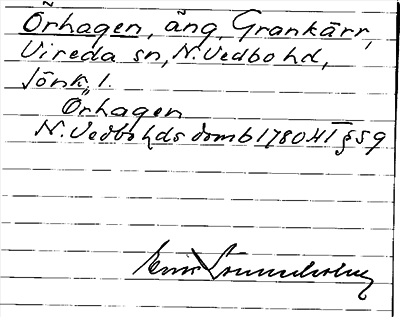 Örhagen, äng, Grankärr,
Vireda sn, N. Vedbo hd,
Jönk. l.
Örhagen
N. Vedbo hds domb 1780 HT § 59